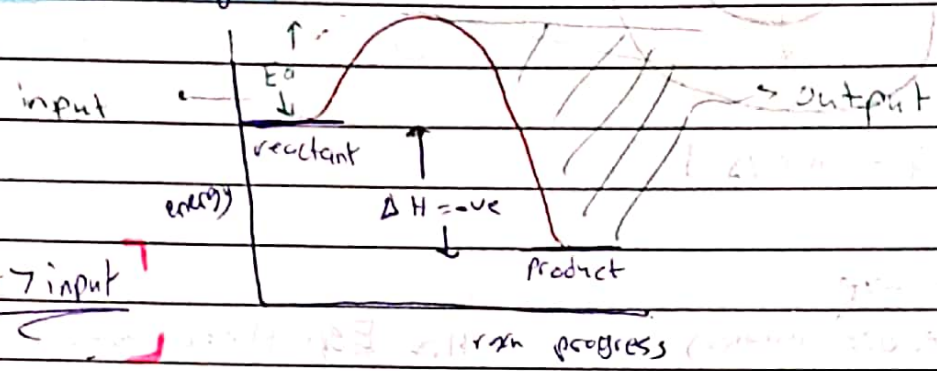 Ea
input
> output
reactant
energy
ΔH = -ve
product
> input
rxn progress